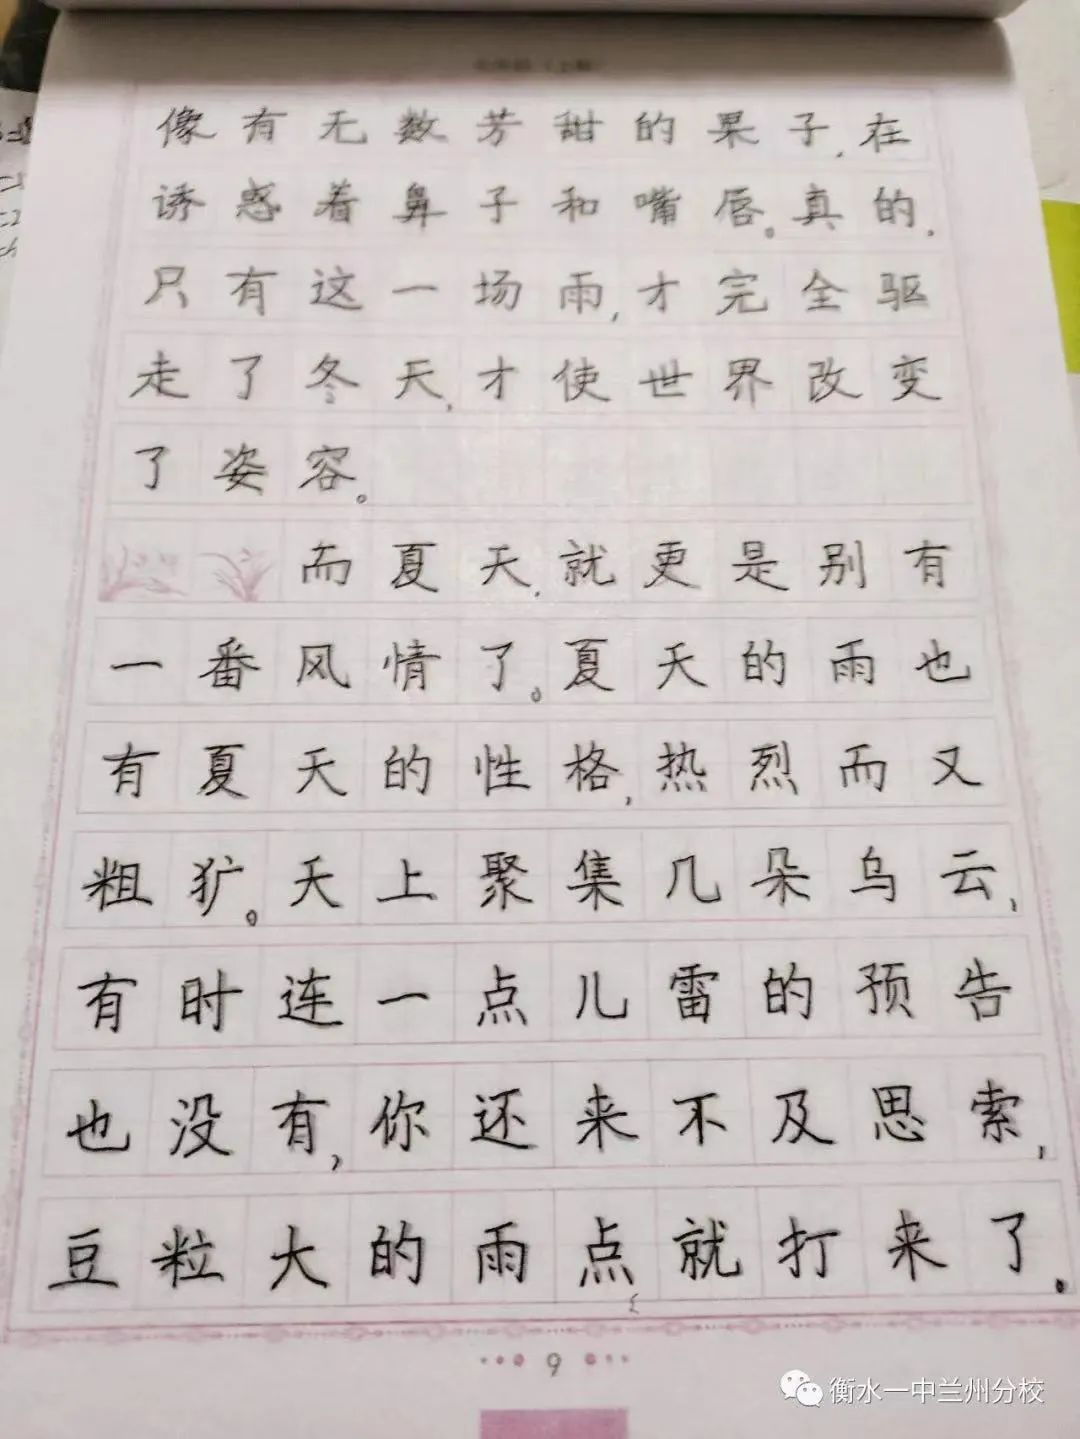 像有无数芳甜的果子,在
诱惑着鼻子和嘴唇。真的,
只有这一场雨,才完全驱
走了冬天,才使世界改变
了姿容。
而夏天,就更是别有
一番风情了。夏天的雨也
有夏天的性格,热烈而又
粗犷。天上聚集几朵乌云,
有时连一点儿雷的预告
也没有,你还来不及思索,
豆粒大的雨点就打来了。
9
衡水一中兰州分校